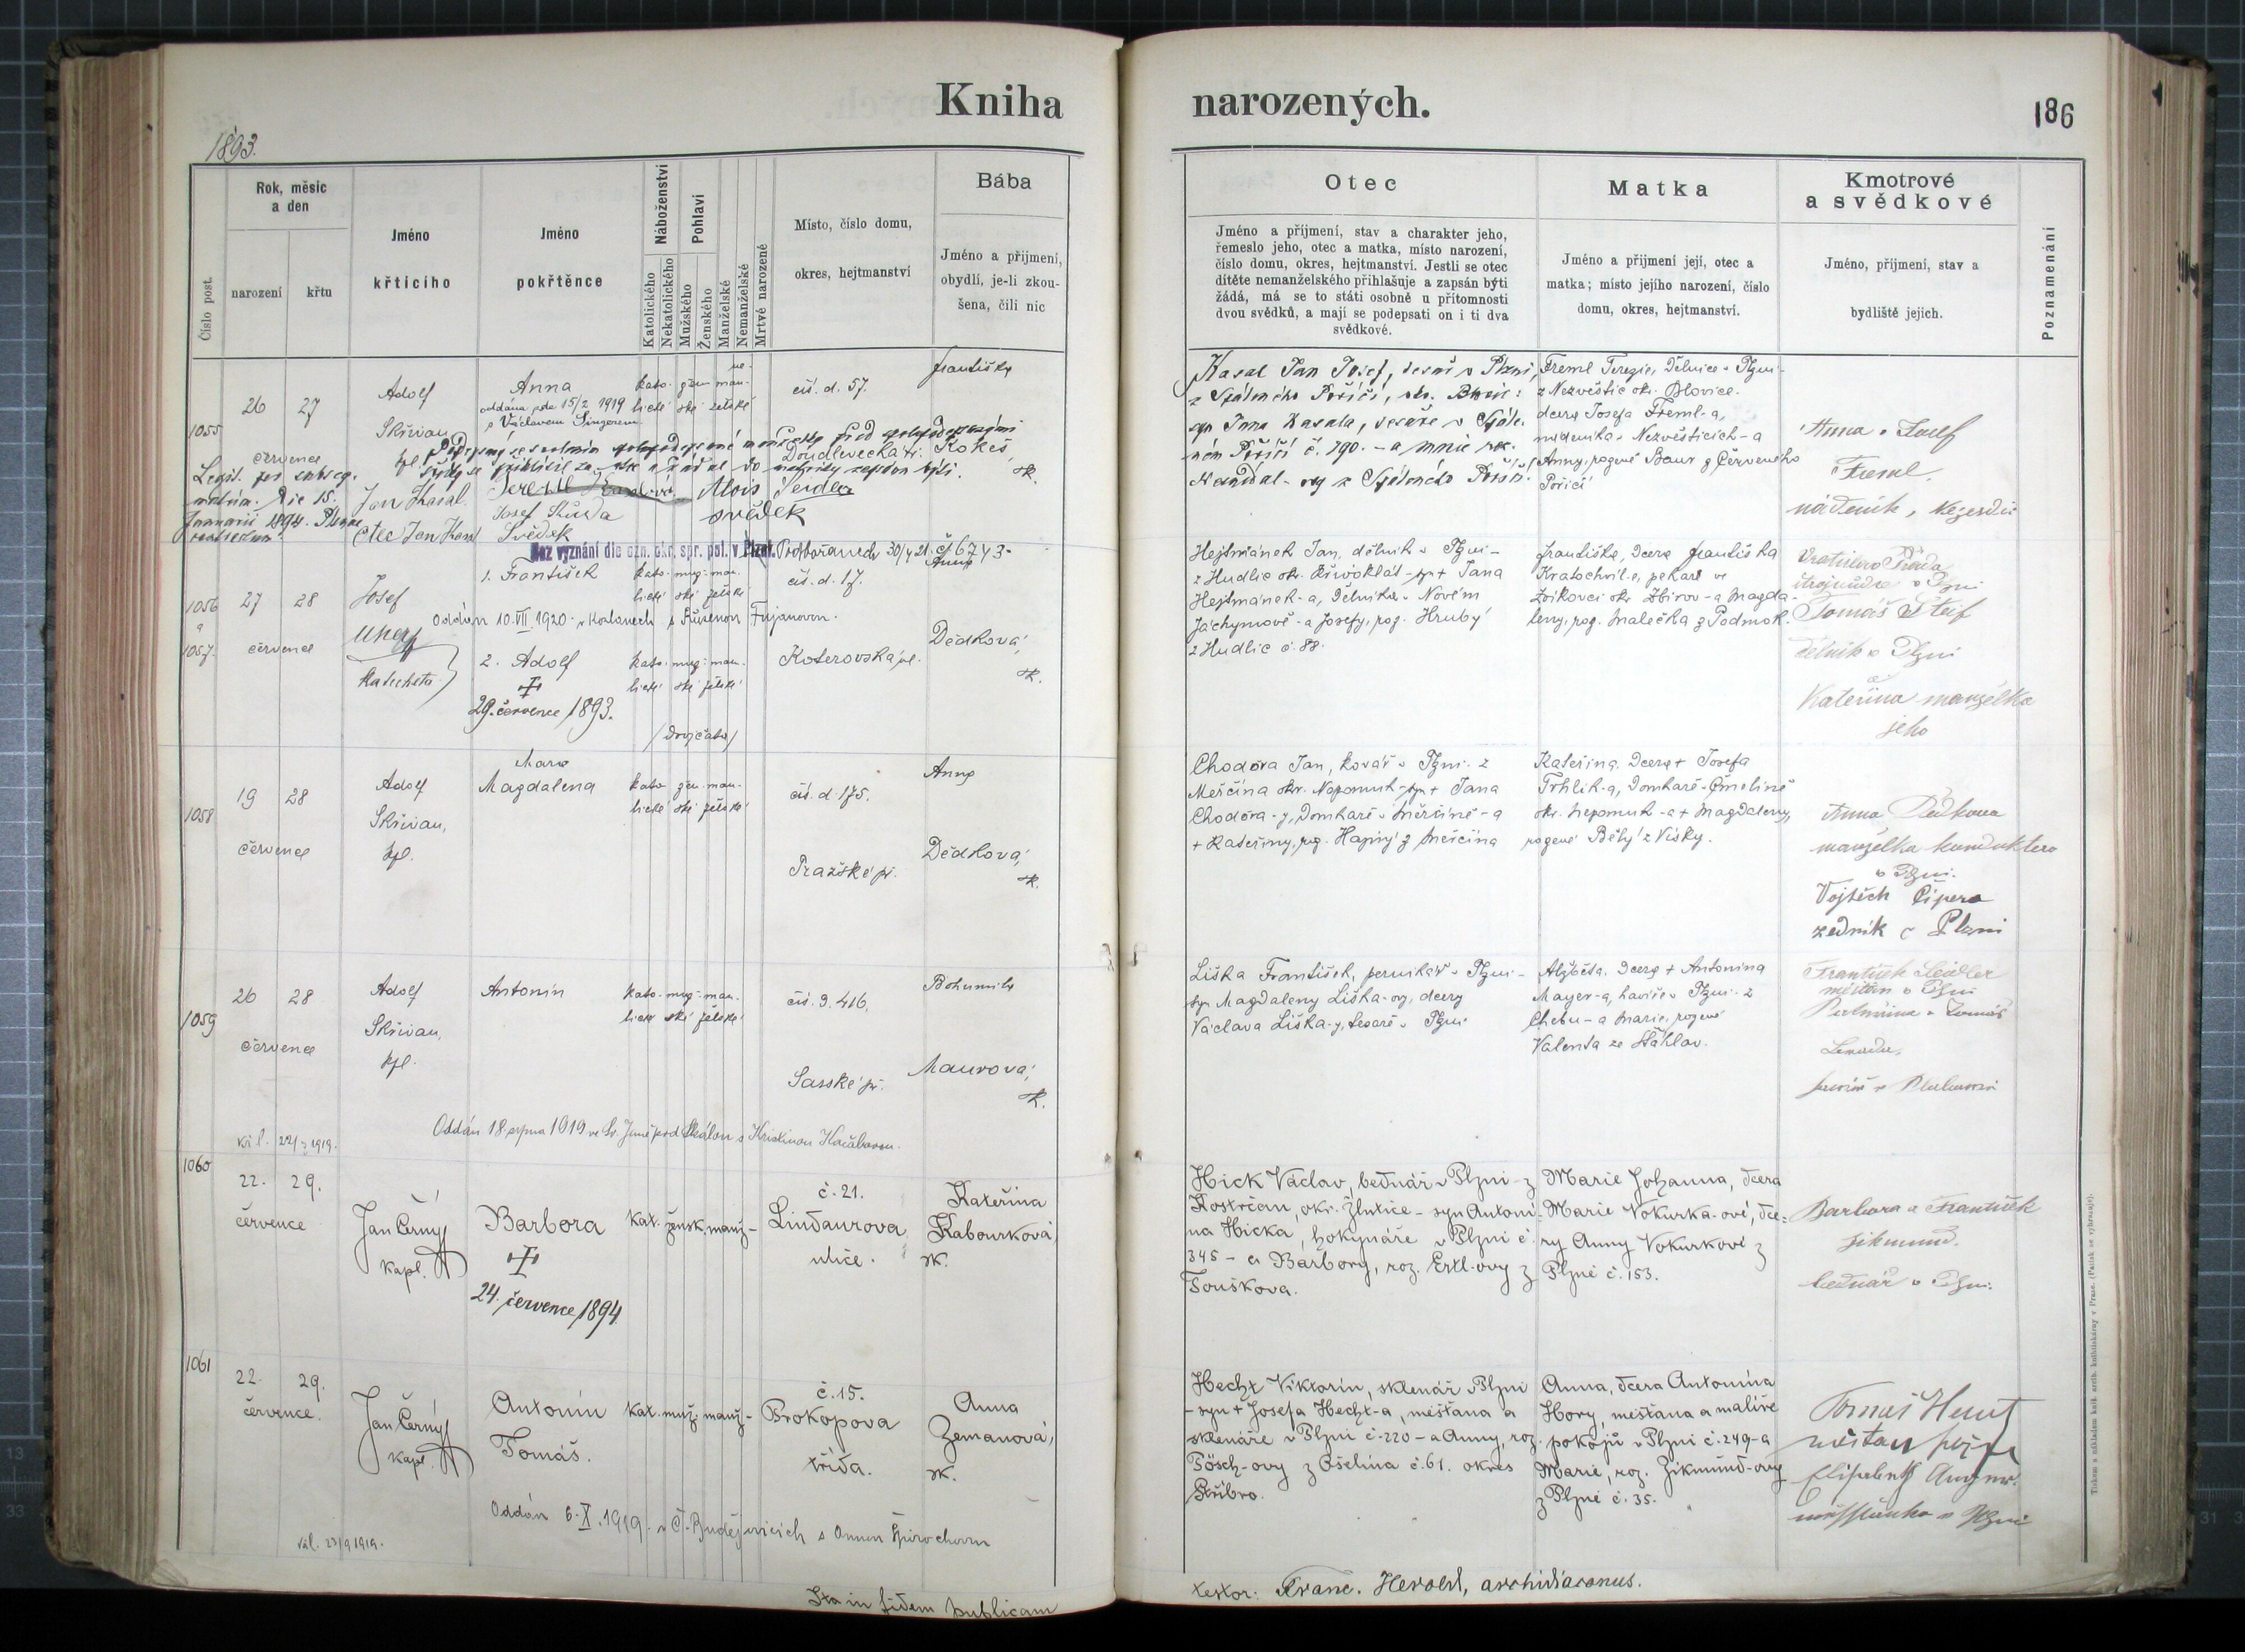 Kniha narozených.
186
1893.
Číslo post.
Rok, měsíc
a den
narození
křtu
Jméno
křtícího
Jméno
pokřtěnce
Náboženství
Katolického
Nekatolického
Pohlaví
Mužského
Ženského
Manželské
Nemanželské
Mrtvě narozené
Místo, číslo domu,
okres, hejtmanství
Bába
Jméno a příjmení,
obydlí, je-li zkou-
šena, čili nic
Otec
Jméno a příjmení, stav a charakter jeho,
řemeslo jeho, otec a matka, místo narození,
číslo domu, okres, hejtmanství. Jestli se otec
dítěte nemanželského přihlašuje a zapsán býti
žádá, má se to státi osobně u přítomnosti
dvou svědků, a mají se podepsati on i ti dva
svědkové.
Matka
Jméno a příjmení její, otec a
matka; místo jejího narození, číslo
domu, okres, hejtmanství.
Kmotrové
a svědkové
Jméno, příjmení, stav a
bydliště jejich.
Poznamenání
1055
26 27
července
Adolf
Skřivan,
kpl.
Anna
oddána dne 15/2 1919
s Václavem Singerem
kato- žen- man-
lické ské želské
čís. d. 57.
Doudlevecká tř.
Františka
Kokeš,
zk.
Jan Kasal
otec Jan Kasal
Svědek
Alois Seidler
svědek
Kasal Jan Josef, tesař v Plzni,
z Spáleného Poříčí,
syn Jana Kasala, tesaře v Spále-
ném Poříčí č. 190. - a
Freml Terezie, dělnice v Plzni-
z Nezvěstic okr. Blovice.
dcera Josefa Freml-a,
v Nezvěsticích - a
Anny, rozené Baur z Červeného
Poříčí
Anna a Josef
Freml,
nádeník,
Bez vyznání dle ozn. okr. spr. pol. v Plzni. Podbořanech 30/4 21. č. 6743-
1056
a
1057.
27 28
července
Josef
katecheta
1. František
kato- muž- man-
lické ské želské
Oddán 10.VII.1920 v Kralovicích s Růženou Fujanovou.
2. Adolf
†
29. července 1893.
kato- muž- man-
lické ské želské
/dvojčata/
čís. d. 17.
Koterovská ul.
Anna
Dědková,
zk.
Hejtmánek Jan, dělník v Plzni-
z Hudlic okr. Křivoklát - syn + Jana
Hejtmánek-a, dělníka v Novém
Jáchymově - a Josefy, roz. Hrubý
z Hudlic č. 88.
Františka, dcera Františka
Kratochvíl-a, pekaře ve
Zvíkovci okr. Zbirov - a Magda-
leny, roz. Malečka z Podmok.
strojvůdce v Plzni
Tomáš Steif
dělník v Plzni
a
Kateřina manželka
jeho
1058
19 28
července
Adolf
Skřivan,
kpl.
Marie
Magdalena
kato- žen- man-
lické ské želské
čís. d. 175.
Pražské př.
Anna
Dědková,
zk.
Chodora Jan, kovář v Plzni. z
Měrčína okr. Nepomuk - syn + Jana
Chodora-y, domkaře v Měrčíně - a
+ Kateřiny, roz. Hapný z Měrčína
Kateřina, dcera + Josefa
Trhlík-a, domkaře v Čmelíně
okr. Nepomuk - a + Magdaleny,
rozené Běhý z Vísky.
Anna Dědkova
manželka konduktera
v Plzni.
Vojtěch Čipera
zedník v Plzni
1059
26 28
července
Adolf
Skřivan,
kpl.
Antonín
kato- muž- man-
lické ské želské
čís. d. 416,
Saské př.
Bohumila
Maurová,
zk.
Liška František, perníkář v Plzni-
syn Magdaleny Liška-ovy, dcery
Václava Liška-y, tesaře v Plzni.
Alžběta, dcera + Antonína
Mayer-a, havíře v Plzni. z
Chebu - a Marie, rozené
Valenta ze Šťáhlav.
František Seidler
měšťan v Plzni
Oddán 18. srpna 1919 ve Sv. Janě pod Skálou s Kristinou Kacábovou.
1060
22. 29.
července
Jan Černý
kapl.
Barbora
†
24. července 1894.
kat. žensk. manž-
č. 21.
Lindaurova
ulice.
Kateřina
Kabourková,
zk.
Hick Václav, bednář v Plzni - z
Kostrčan, okr. Žlutice - syn Antoní-
na Hicka, hokynáře v Plzni č.
345 - a Barbory, roz. Ertl-ovy z
Touškova.
Marie Johanna, dcera
Marie Vokurka-ové, dce-
ry Anny Vokurkové z
Plzně č. 153.
Barbora a František
Zikmund.
bednář v Plzni.
1061
22. 29.
července.
Jan Černý
kapl.
Antonín
Tomáš.
kat. muž. manž-
č. 15.
Prokopova
třída.
Anna
Zemanová,
zk.
Hecht Viktorin, sklenář v Plzni
- syn + Josefa Hecht-a, měšťana a
sklenáře v Plzni č. 220 - a Anny, roz.
Pösch-ovy z Ošelína č. 61. okres
Stříbro.
Anna, dcera Antonína
Hory, měšťana a malíře
pokojů v Plzni č. 249 - a
Marie, roz. Zikmund-ovy
z Plzně č. 35.
Oddán 6. X. 1919. v Č. Budějovicích s Annou Špirochovou
Ita in fidem publicam
testor: Franc. Herold, archidiaconus.